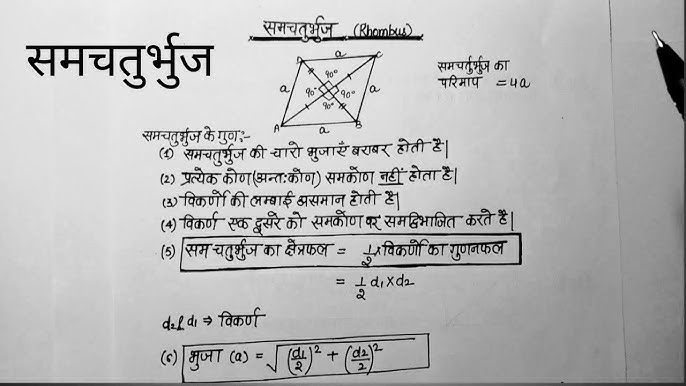 समचतुर्भुज (Rhombus)
समचतुर्भुज
D a C
a 90° 90° 90° 90° a
A a B
समचर्तुर्भुज का
परिमाप = 4a
समचतुर्भुज के गुण:-
(1) समचतुर्भुज की चारो भुजाएँ बराबर होती है|
(2) प्रत्येक कोण (अन्तःकोण) समकोण नहीं होता है|
(3) विकर्णो की लम्बाई असमान होती है|
(4) विकर्ण एक दुसरे को समकोण पर समद्विभाजित करते है|
(5) समचतुर्भुज का क्षेत्रफल = 1/2 × विकर्णो का गुणनफल
= 1/2 d₁ × d₂
d₂ & d₁ ⇒ विकर्ण
(6) भुजा (a) = √((d₁/2)² + (d₂/2)²)